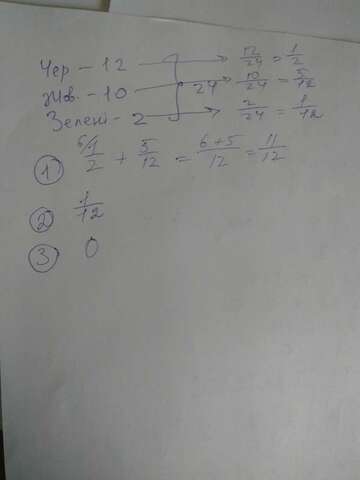 Чер – 12 → 12/24 = 1/2
Жов. – 10 24 → 10/24 = 5/12
Зелені – 2 → 2/24 = 1/12
1 6/1/2 + 5/12 = 6+5/12 = 11/12
2 1/12
3 0